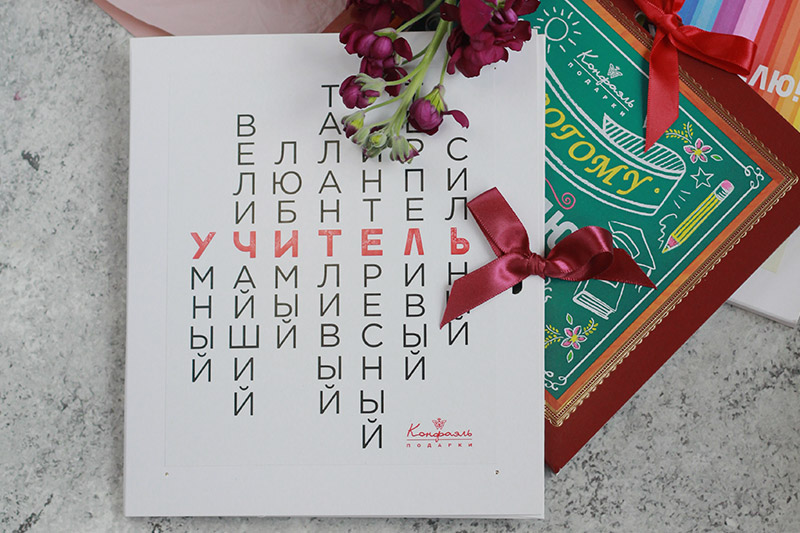 УЧИТЕЛЬ
УМНЫЙ
ВЕЛИЧАЙШИЙ
ЛЮБИМЫЙ
ТАЛАНТЛИВЫЙ
ИНТЕРЕСНЫЙ
ЕРПЕЛИВЫЙ
СИЛЬНЫЙ
Конфаэль
ПОДАРКИ
Конфаэль
ПОДАРКИ
РОГОМУ